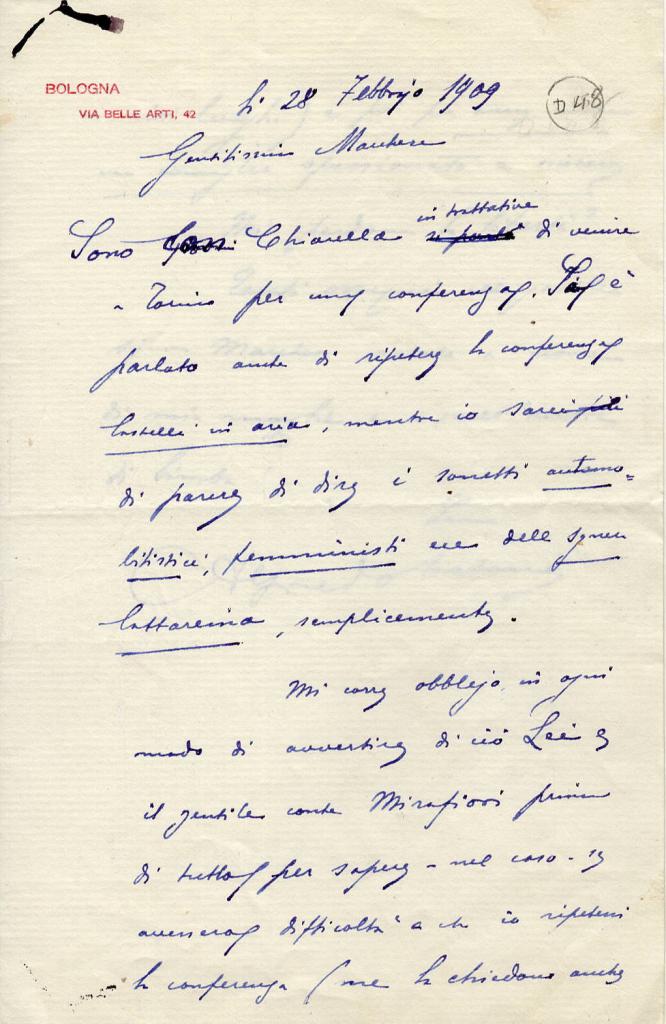 BOLOGNA
VIA BELLE ARTI, 42
li 28 Febbrajo 1909
D 48
Gentilissimo Marchese
Sono Chiarella in trattative di venire
a Torino per una conferenza. Si è
parlato anche di ripetere la conferenza
Castelli in aria, mentre io sarei
di parere di dire i sonetti automo=
bilistici, femministi ecc della
Cattareina, semplicemente.
Mi corre obbligo in ogni
modo di avvertire di ciò Lei e
il gentile conte Mirafiori prima
di tutto per sapere - nel caso - se
avesser difficoltà a che io ripetessi
la conferenza (me la chiedono anche